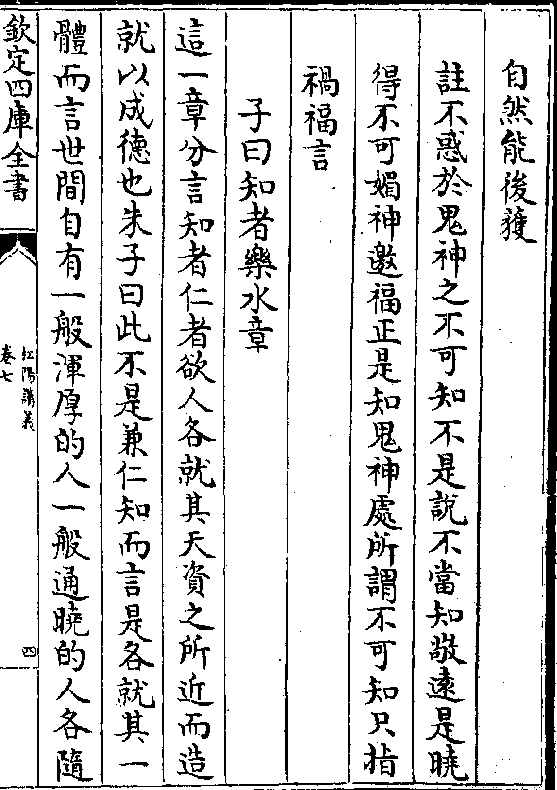 自然能後獲
註不惑於鬼神之不可知不是說不當知敬遠是曉
得不可媚神邀福正是知鬼神處所謂不可知只指
禍福言
子曰知者樂水章
這一章分言知者仁者欲人各就其天資之所近而造
就以成德也朱子曰此不是兼仁知而言是各就其一
體而言世間自有一般渾厚的人一般通曉的人各隨
欽定四庫全書
松陽講義
卷七
四